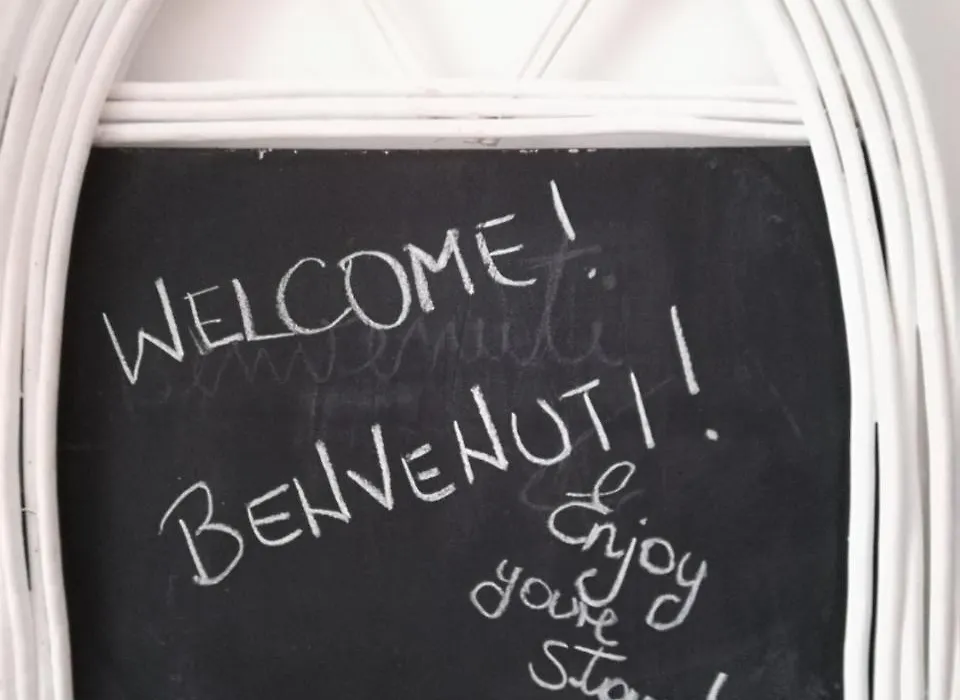 WELCOME!
BENVENUTI!
Enjoy
youre
Stay!